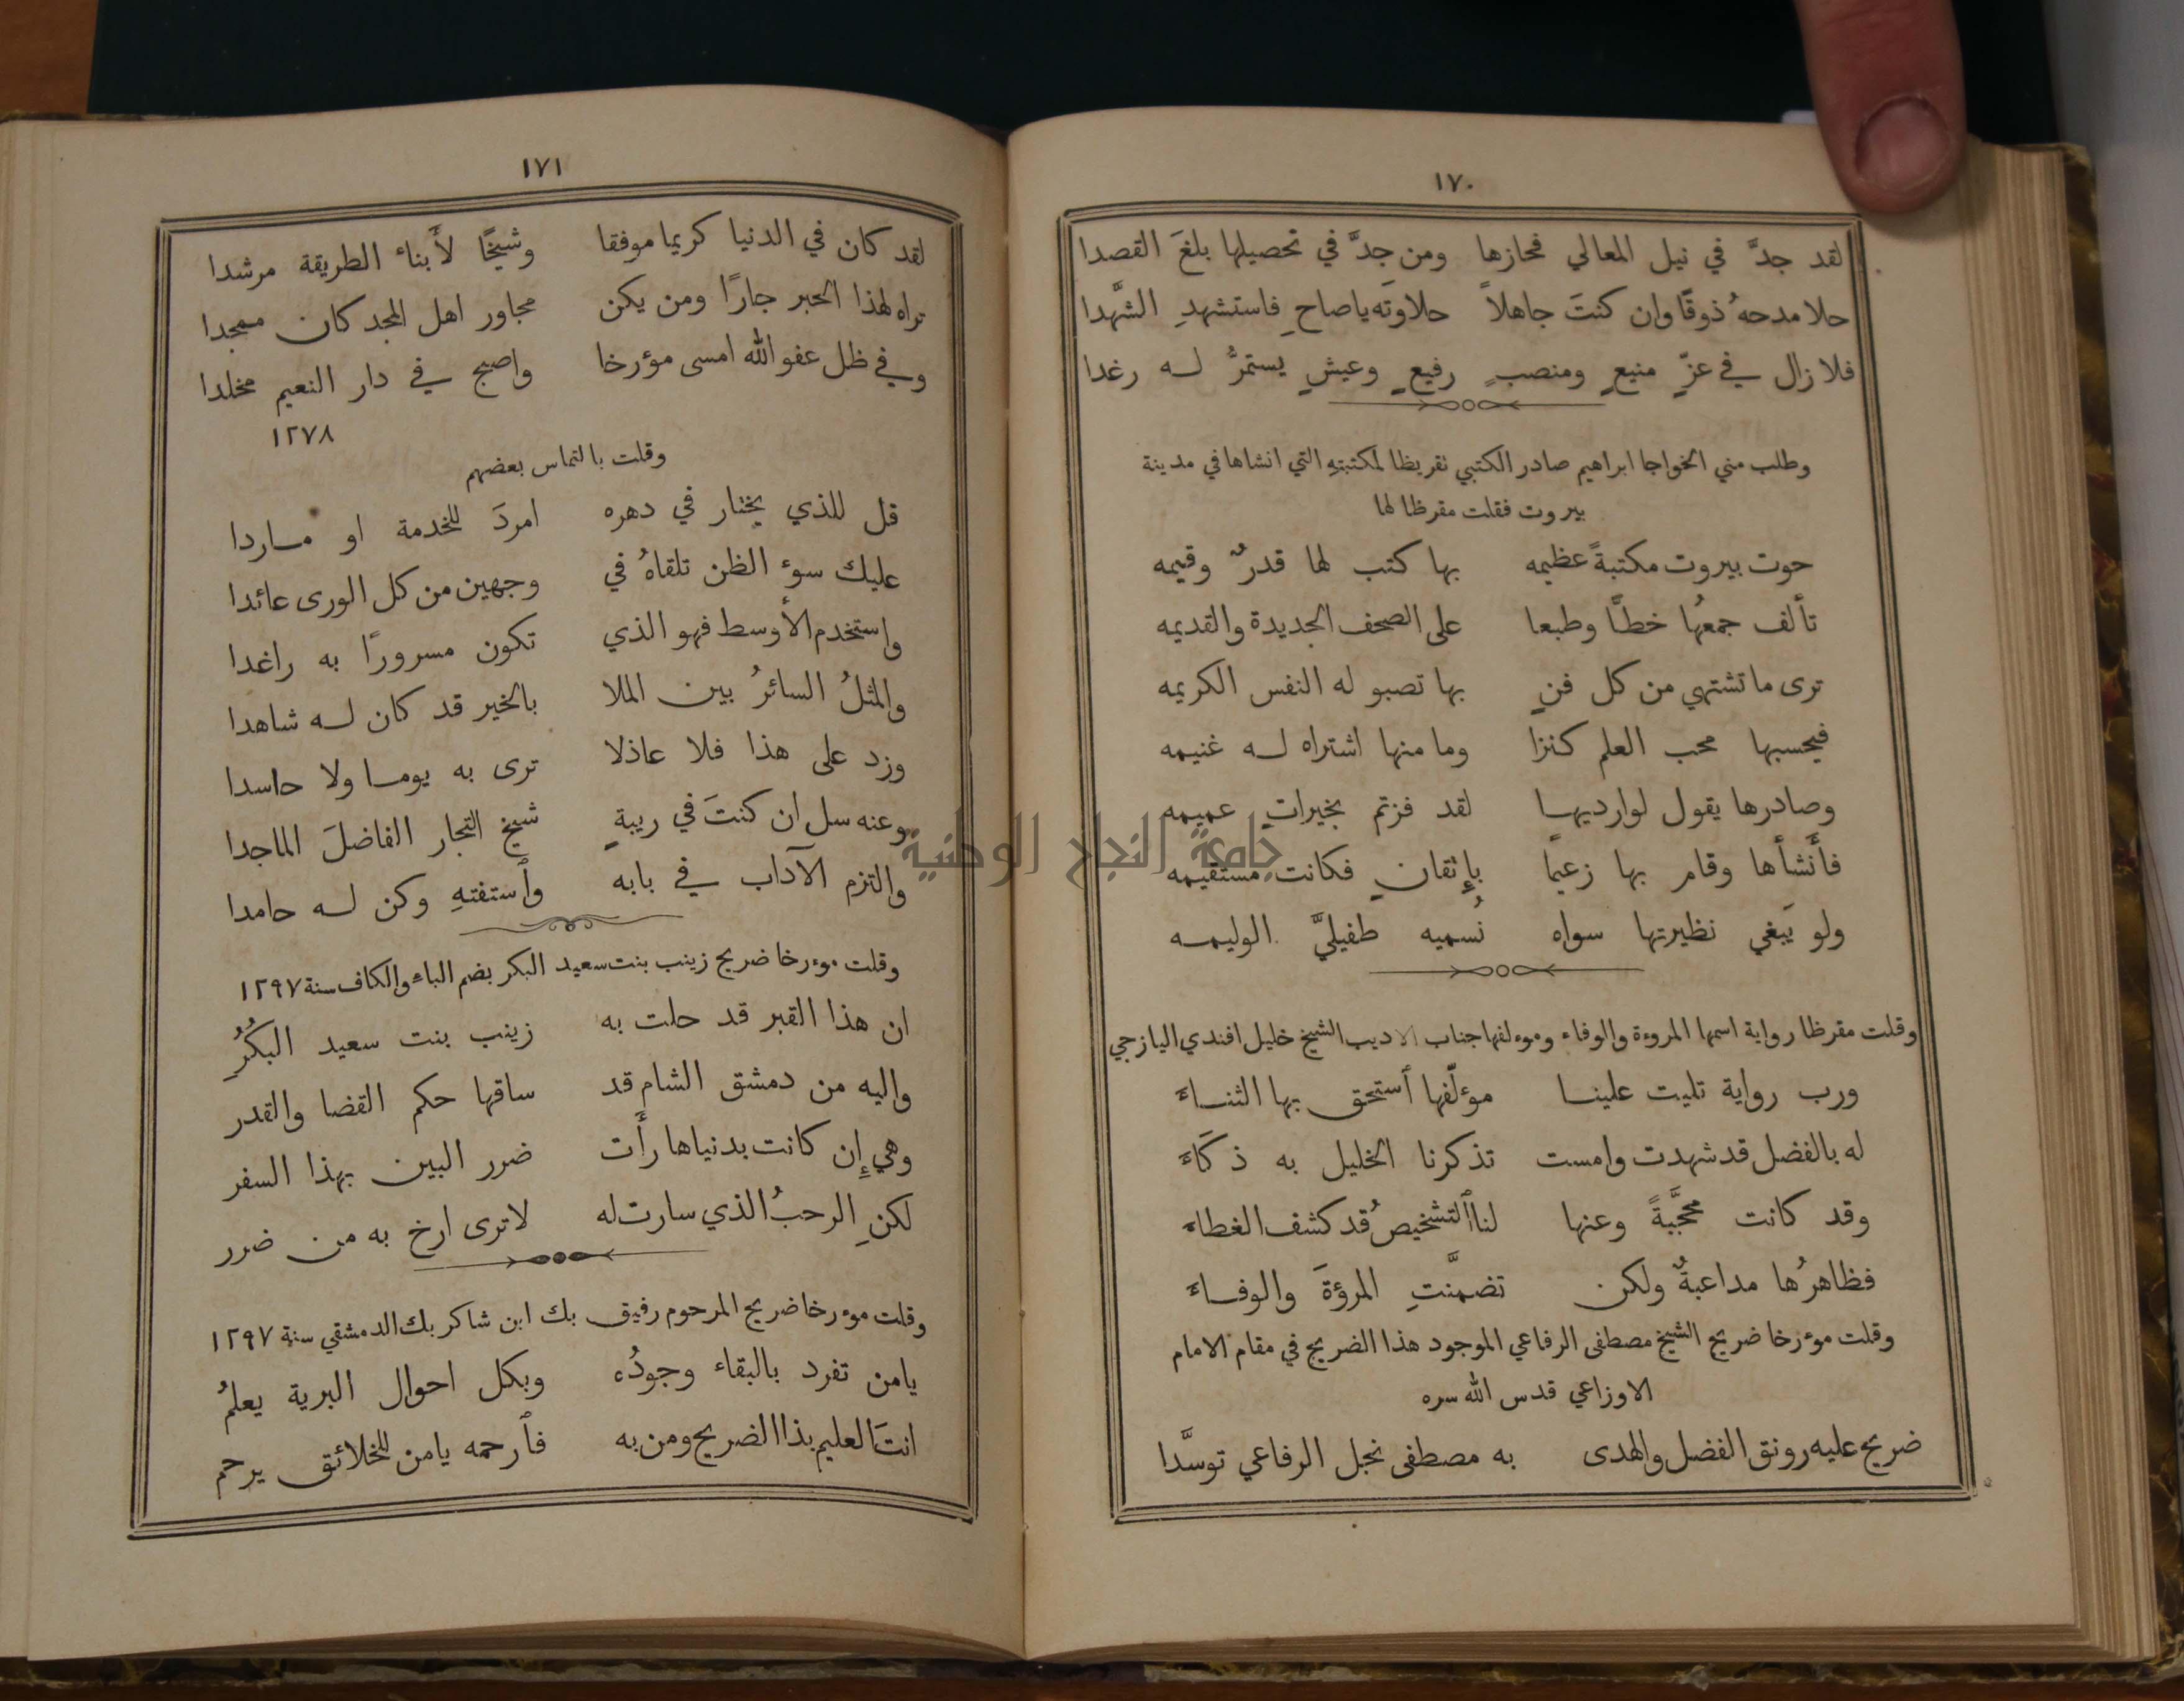 ١٧٠
لقد جدَّ في نيل المعالي فحازها ومن جدَّ في تحصيلها بلغَ القصدا
حلا مدحهُ ذوقًا وان كنتَ جاهلاً حلاوتَه ياصاحِ فاستشهدِ الشَّهدا
فلا زال في عزّ منيعٍ ومنصبٍ رفيعٍ وعيشٍ يستمرُّ له رغدا
وطلب مني الخواجا ابراهيم صادر الكتبي تقريظا لمكتبتهِ التي انشاها في مدينة
بيروت فقلت مقرظا لها
حوت بيروت مكتبةً عظيمه بها كتب لها قدرٌ وقيمه
تألف جمعُها خطًّا وطبعا على الصحف الجديدة والقديمه
ترى ما تشتهي من كل فنٍ بها تصبو له النفس الكريمه
فيحسبها محب العلم كنزا وما منها اشتراه له غنيمه
وصادرها يقول لوارديها لقد فزتم بخيراتٍ عميمه
فأَنشأها وقام بها زعيمًا بإتقانٍ فكانت مستقيمه
ولو يَبغي نظيرتها سواه نُسميه طفيليَّ الوليمه
وقلت مقرظا رواية اسمها المروءة والوفاء وموءلفها جناب الاديب الشيخ خليل افندي اليازجي
ورب رواية تليت علينا مؤلّفها اَستحق بها الثناءَ
له بالفضل قد شهدت وامست تذكرنا الخليل به ذكَاءَ
وقد كانت محجَّبةً وعنها لنا اَلتشخيصُ قد كشف الغطاءَ
فظاهرُها مداعبةٌ ولكن تضمنَّتِ المرؤةَ والوفاءَ
وقلت موءرخا ضريح الشيخ مصطفى الرفاعي الموجود هذا الضريح في مقام الامام
الاوزاعي قدس الله سره
ضريح عليه رونق الفضل والهدى به مصطفى نجل الرفاعي توسَّدا
١٧١
لقد كان في الدنيا كريما موفقا وشيخًا لأَبناء الطريقة مرشدا
تراه لهذا الحبر جارًا ومن يكن مجاور اهل المجد كان ممجدا
وفي ظل عفو الله امسى مؤرخا واصبح في دار النعيم مخلدا
١٢٧٨
وقلت بالتماس بعضهم
قل للذي يختار في دهره امردَ للخدمة او ماردا
عليك سوء الظن تلقاهُ في وجهين من كل الورى عائدا
واستخدم الأوسط فهو الذي تكون مسرورًا به راغدا
والمثلُ السائرُ بين الملا بالخير قد كان له شاهدا
وزد على هذا فلا عاذلا ترى به يوما ولا حاسدا
وعنه سل ان كنتَ في ريبةٍ شيخ التجار الفاضلَ الماجدا
والتزم الآداب في بابه واَستفتهِ وكن له حامدا
وقلت موءرخا ضريح زينب بنت سعيد البكر بضم الباء والكاف سنة ١٢٩٧
ان هذا القبر قد حلت به زينب بنت سعيد البكُرُِ
واليه من دمشق الشام قد ساقها حكم القضا والقدر
وهي إِن كانت بدنياها رأَت ضرر البين بهذا السفر
لكنِ الرحبُ الذي سارت له لا ترى ارخ به من ضرر
وقلت موءرخا ضريح المرحوم رفيق بك ابن شاكر بك الدمشقي سنة ١٢٩٧
يامن تفرد بالبقاء وجودُه وبكل احوال البرية يعلمُ
انتَ العليم بذا الضريح ومن به فاَرحمه يامن للخلائق يرحم
جامعة النجاح الوطنية